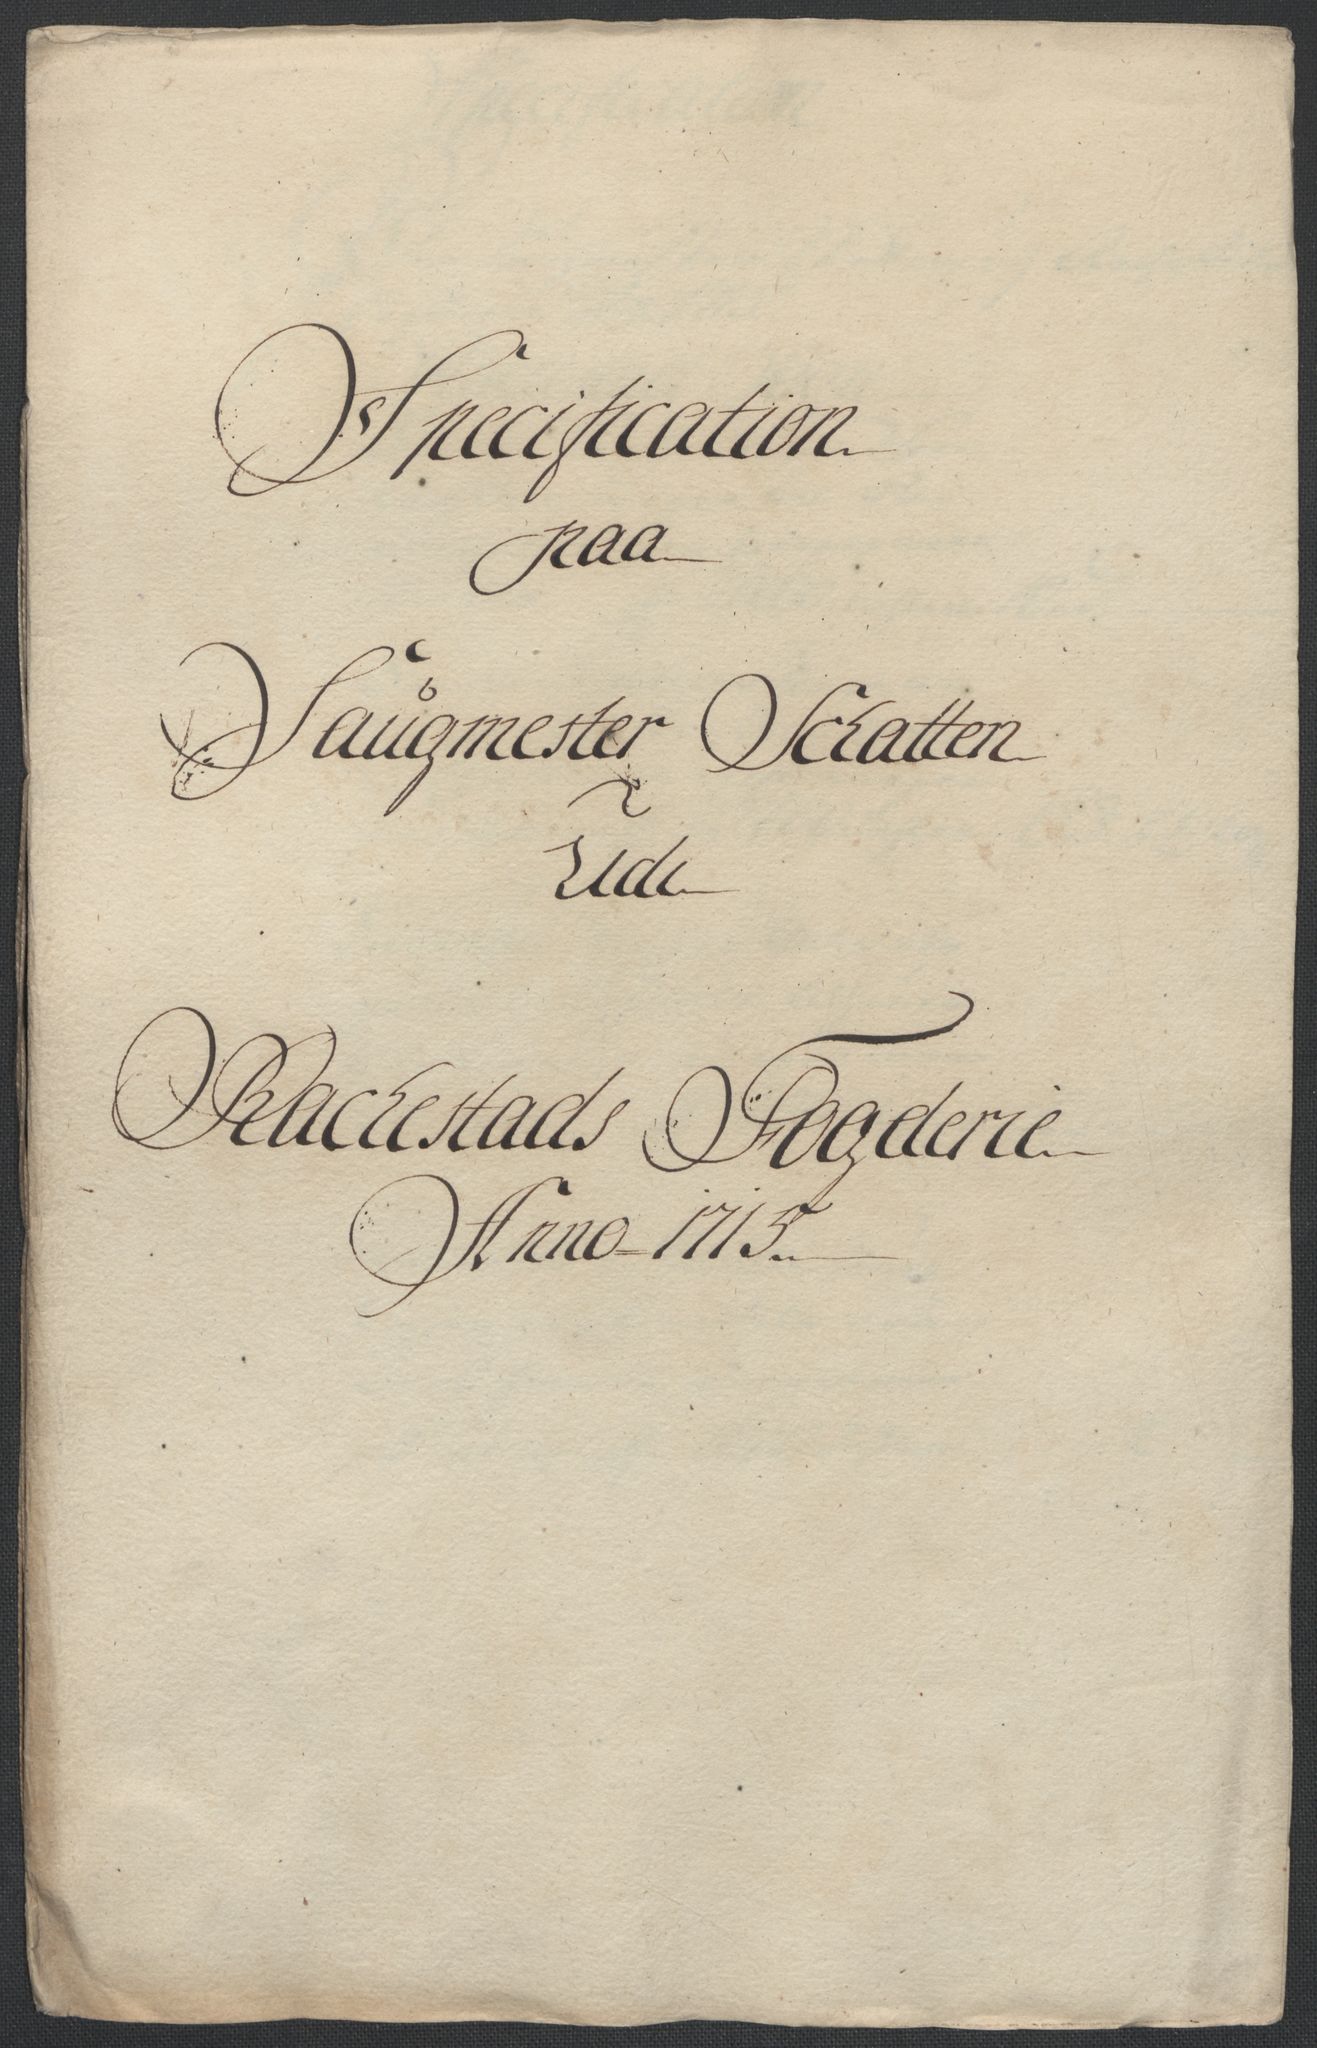 Specification
paa
Saugmester Schatten
Udi
Rachestads Fogderie
Anno 1715